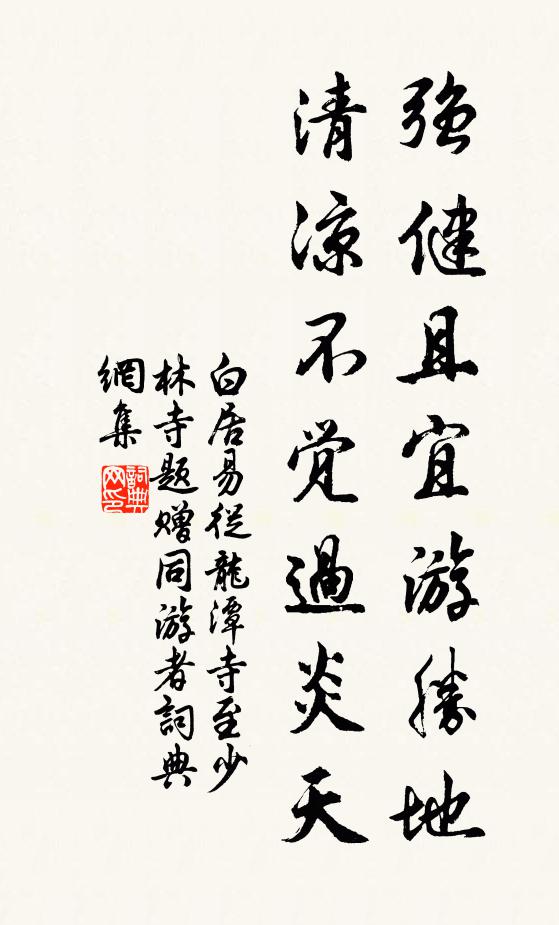 强健且宜游勝地
清涼不覺過炎天
白居易從龍潭寺至少
林寺題赠同游者詞典
網集
詞典网印